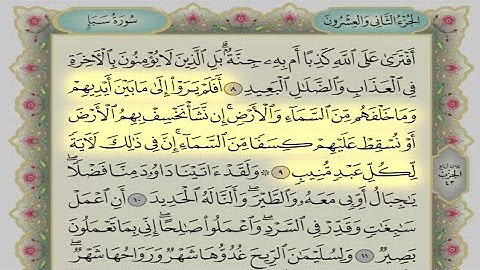 سُورَةُ سَبَإٍ
الجُزْءُ الثَّانِي وَالعِشْرُونَ
أَفْتَرَىٰ عَلَى اللَّهِ كَذِبًا أَم بِهِۦ جِنَّةٌۢ ۗ بَلِ الَّذِينَ لَا يُؤْمِنُونَ بِالْآخِرَةِ
فِي الْعَذَابِ وَالضَّلَالِ الْبَعِيدِ ٨ أَفَلَمْ يَرَوْا إِلَىٰ مَا بَيْنَ أَيْدِيهِمْ
وَمَا خَلْفَهُم مِّنَ السَّمَاءِ وَالْأَرْضِ ۚ إِن نَّشَأْ نَخْسِفْ بِهِمُ الْأَرْضَ
أَوْ نُسْقِطْ عَلَيْهِمْ كِسَفًا مِّنَ السَّمَاءِ ۚ إِنَّ فِي ذَٰلِكَ لَآيَةً
لِّكُلِّ عَبْدٍ مُّنِيبٍ ٩ ۞ وَلَقَدْ آتَيْنَا دَاوُودَ مِنَّا فَضْلًا ۖ
يَا جِبَالُ أَوِّبِي مَعَهُۥ وَالطَّيْرَ ۖ وَأَلَنَّا لَهُ الْحَدِيدَ ١٠ أَنِ اعْمَلْ
سَابِغَاتٍ وَقَدِّرْ فِي السَّرْدِ ۖ وَاعْمَلُوا صَالِحًا ۖ إِنِّي بِمَا تَعْمَلُونَ
بَصِيرٌ ١١ وَلِسُلَيْمَانَ الرِّيحَ غُدُوُّهَا شَهْرٌ وَرَوَاحُهَا شَهْرٌ ۖ
الحِزْب
٤٣